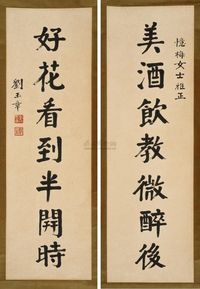 憶梅女士雅正
美酒飲教微醉後
好花看到半開時
劉玉章